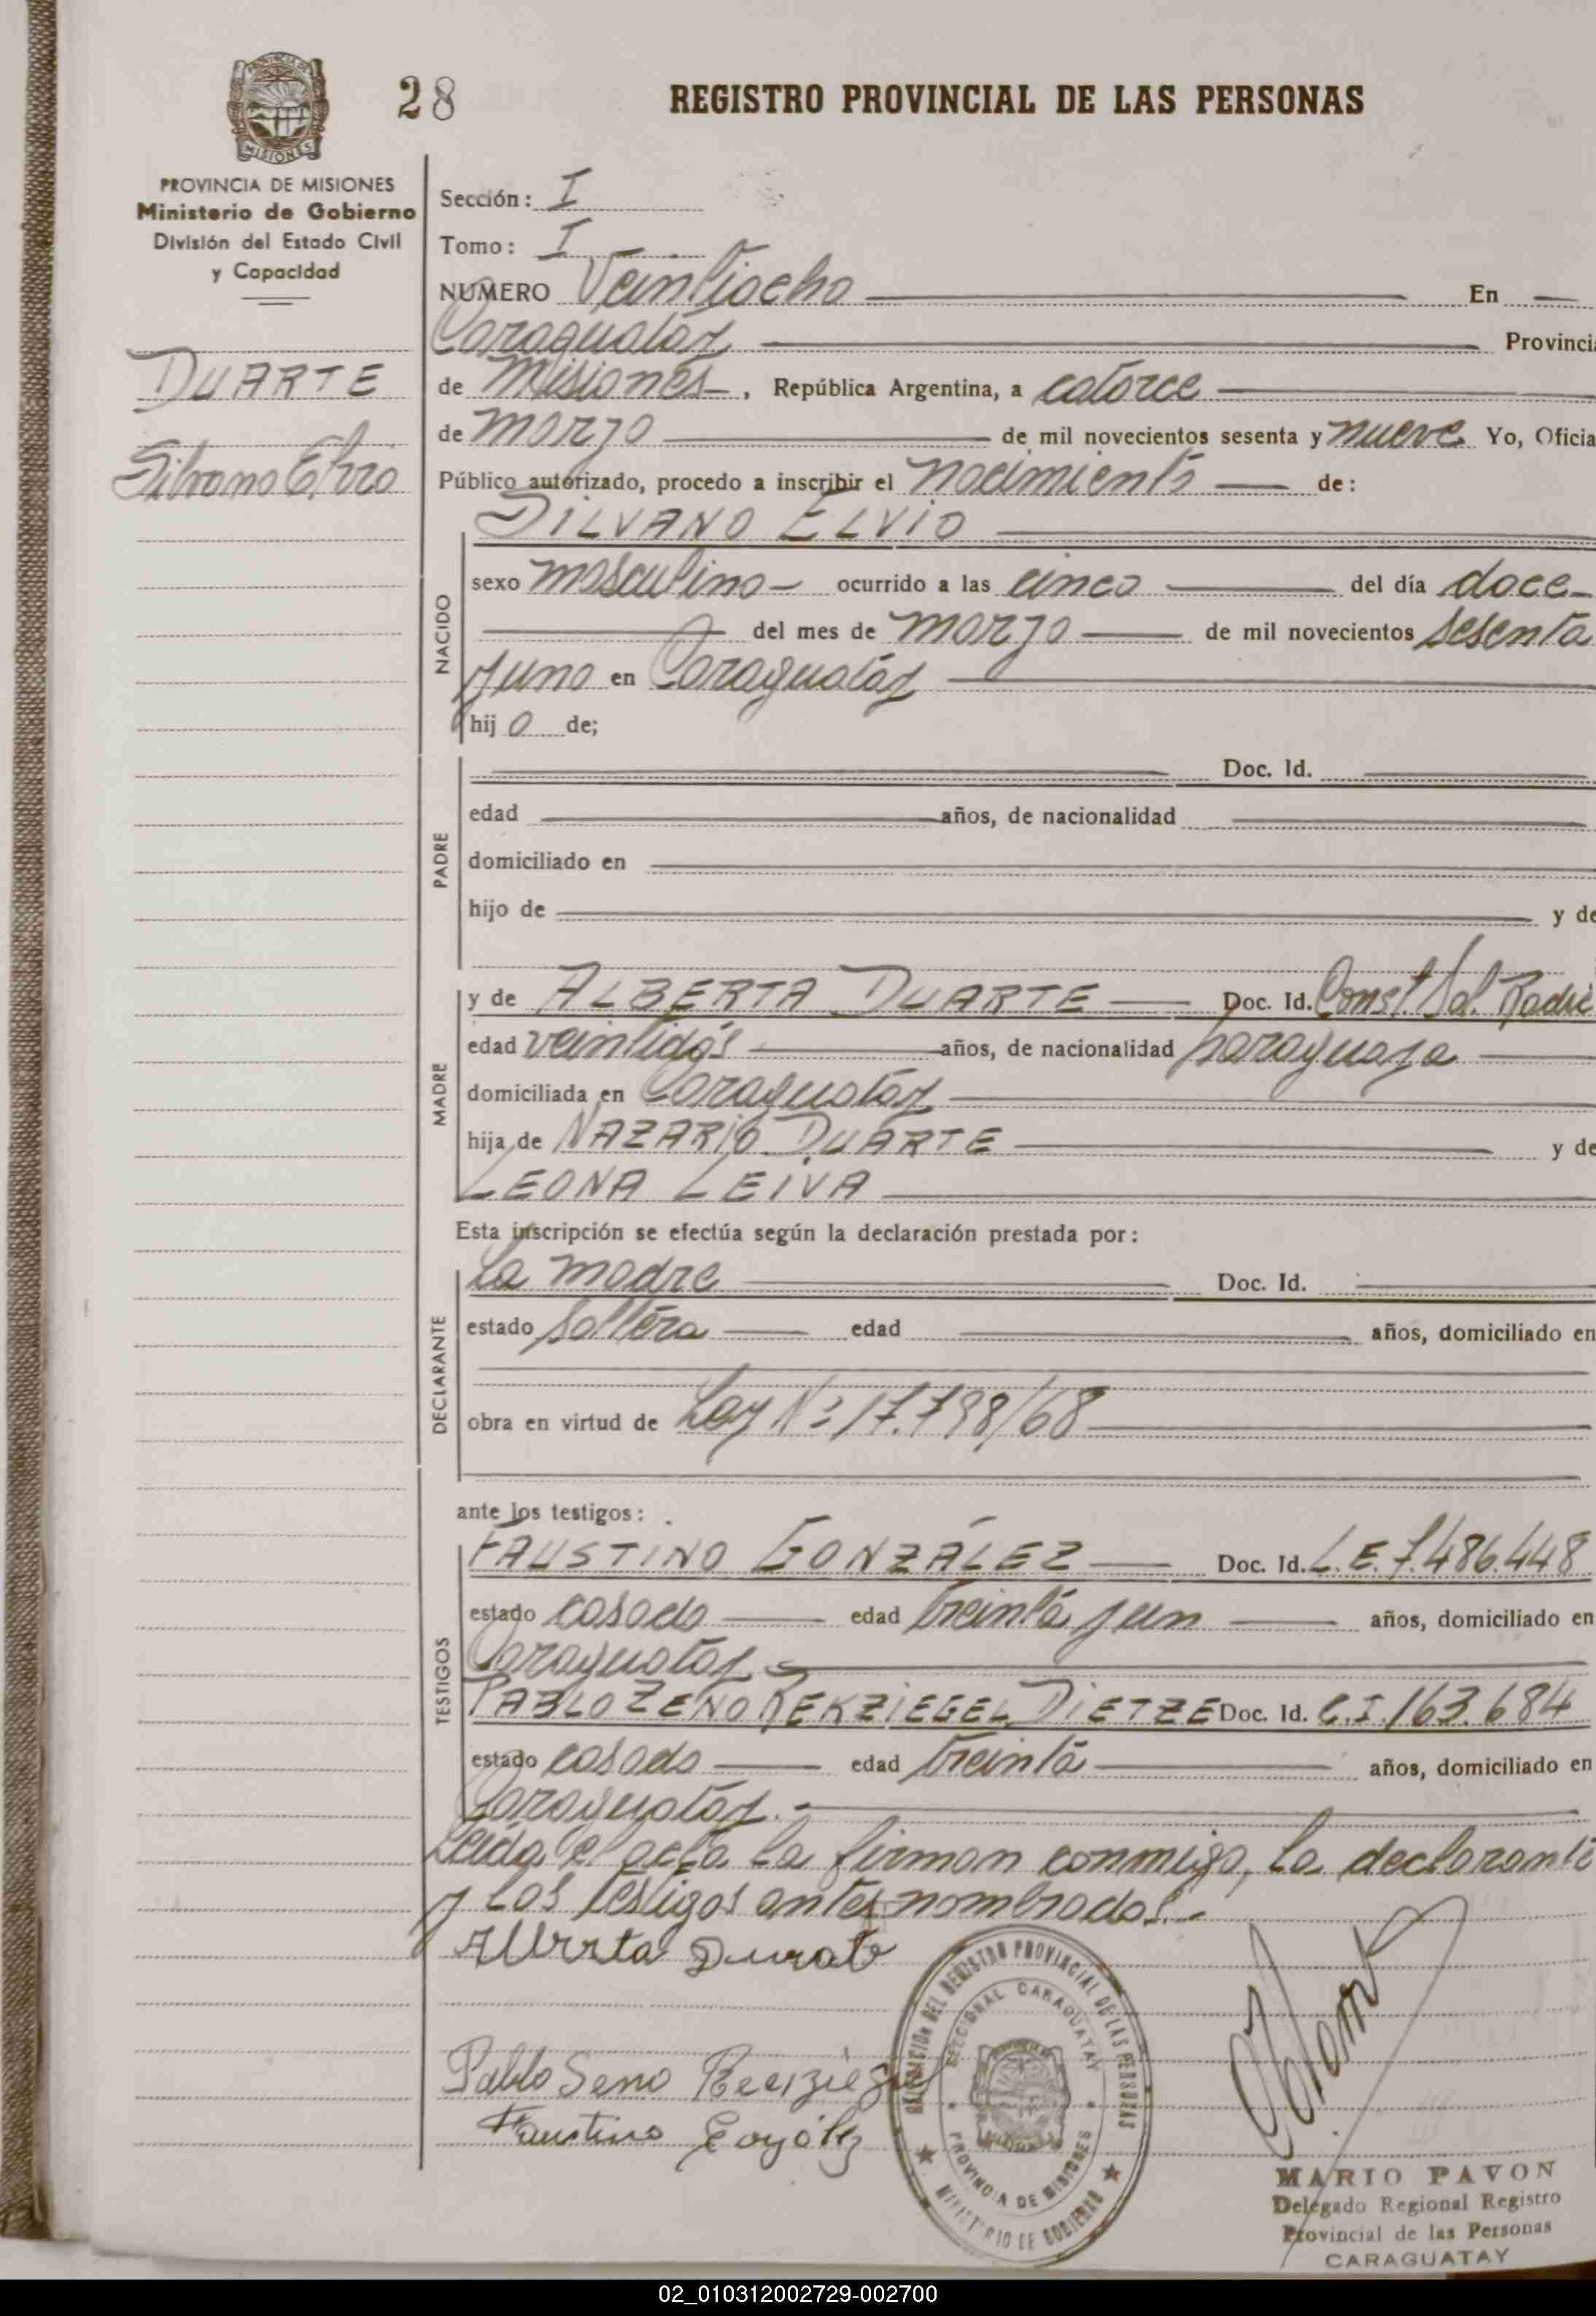 28
REGISTRO PROVINCIAL DE LAS PERSONAS
PROVINCIA DE MISIONES
Ministerio de Gobierno
División del Estado Civil
y Capacidad
DUARTE
Silvano Elvio
Sección: I
Tomo: I
NUMERO Veintiocho En
Caraguatay Provinci
de Misiones, República Argentina, a catorce
de marzo de mil novecientos sesenta y nueve Yo, Oficia
Público autorizado, procedo a inscribir el nacimiento de:
SILVANO ELVIO
NACIDO
sexo masculino ocurrido a las cinco del día doce
del mes de marzo de mil novecientos sesenta
y uno en Caraguatay
hij o de;
PADRE
Doc. Id.
edad años, de nacionalidad
domiciliado en
hijo de y de
MADRE
y de ALBERTA DUARTE Doc. Id. Const. Sol. Radic
edad veintidós años, de nacionalidad paraguaya
domiciliada en Caraguatay
hija de NAZARIO DUARTE y de
LEONA LEIVA
Esta inscripción se efectúa según la declaración prestada por:
DECLARANTE
La madre Doc. Id.
estado soltera edad años, domiciliado en
obra en virtud de Ley Nº 17.798/68
ante los testigos:
TESTIGOS
FAUSTINO GONZÁLEZ Doc. Id. L.E. 7.486.448
estado casado edad treinta y un años, domiciliado en
Caraguatay
PABLO ZENO REKZIEGEL DIETZE Doc. Id. C.I. 163.684
estado casado edad treinta años, domiciliado en
Caraguatay.
Leída el acta la firman conmigo, la declarante
y los testigos antes nombrados.
Alberta Durate
Pablo Seno
Faustino
DELEGACION DEL REGISTRO PROVINCIAL DE LAS PERSONAS
SECCIONAL CARAGUATAY
PROVINCIA DE MISIONES
MINISTERIO DE GOBIERNO
MARIO PAVON
Delegado Regional Registro
Provincial de las Personas
CARAGUATAY
02_010312002729-002700